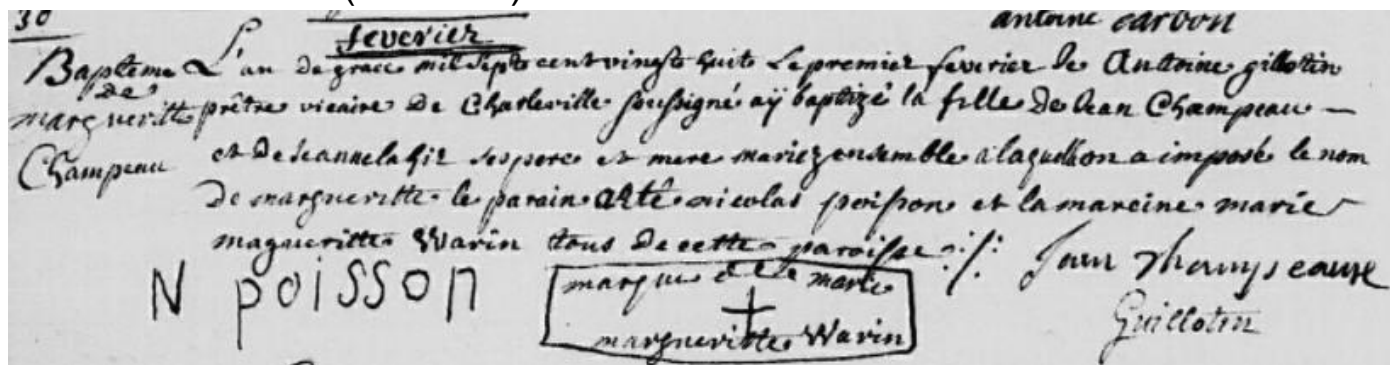 30
antoine carbon
feverier
Bapteme
de
margueritte
Champeau
L'an de grace mil sept cent vingt huit Le premier feverier Je Antoine gillotin
prêtre vicaire De Charleville soussigné aÿ baptizé la fille de Jean Champeau —
et de Jeanne lafiz ses pere et mere mariez ensemble a laquelle on a imposé le nom
De margueritte le parain a eté nicolas poisson et la mareine marie
magueritte Warin tous de cette paroisse ·/·
N poisson
marque de marie
margueritte Warin
Jean Champeaux
Guillotin